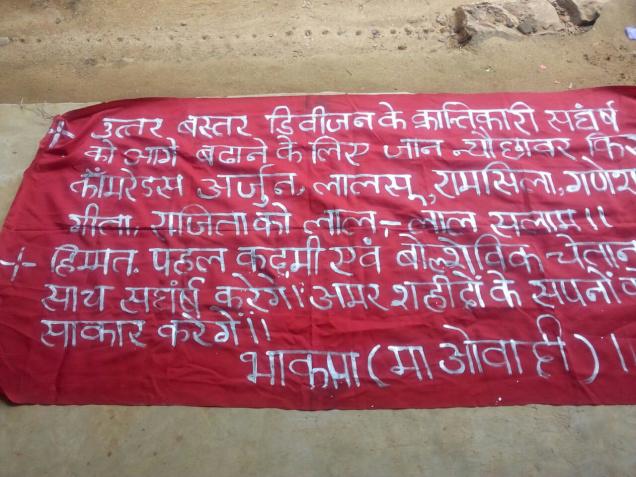 + उत्तर बस्तर डिवीजन के क्रान्तिकारी सघंर्ष
को आगे बढाने के लिए जान न्यौछावर
कॉमरेडस अर्जुन, लालसू, रामसिला, गणेश
गीता, राजिता को लाल-लाल सलाम।।
+ हिम्मत, पहल कदमी एवं बोल्शेविक
साथ सघंर्ष करेगें। अमर शहीदों के सपनों
साकार करेगें।।
भाकपा (माओवादी)।।